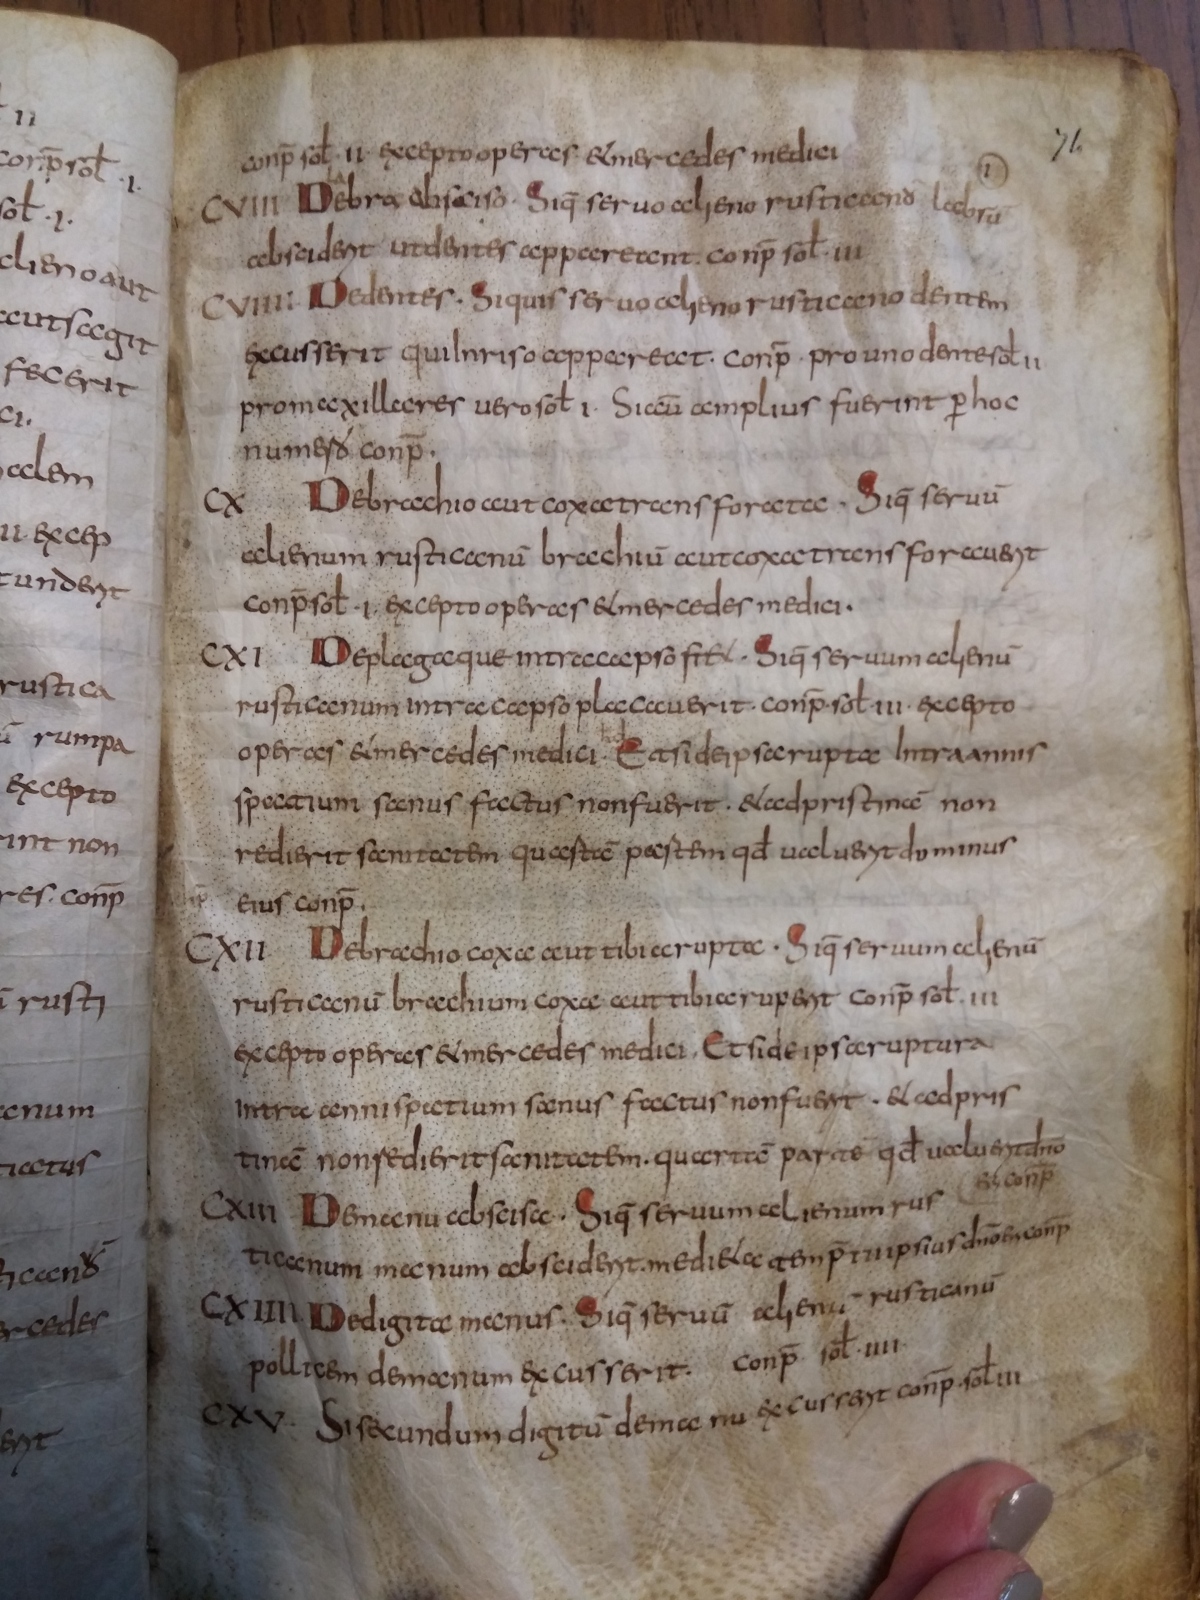 II
conp̄ sol̄ .I.
sol̄ .I.
clieno aut
aut sagit
fecerit
ci.
alem
II excep
tunderit
rustica
ū rumpa
excepto
rint non
res. conp̄
ū rusti
anum
ticatus
cedes
erit
76
conp̄ sol̄ II excepto operas & mercedes medici
1
CVIII Debra absciso. Siq̄ servo alieno rusticano labrū
absciderit ut dentes appareant. conp̄ sol̄ III
CVIIII Dedentes. Siquis servo alieno rusticano dentem
excusserit qui in riso appareat. conp̄ pro uno dente sol̄ II
pro maxillares vero sol̄ I. Si aū amplius fuerint p̄ hoc
numerū conp̄.
CX Debrachio aut coxa transforata. Siq̄ servū
alienum rusticanū brachiū aut coxa transforaverit
conp̄ sol̄ .I. excepto operas & mercedes medici.
CXI Deplagaque intra capso fit. Siq̄ servum alienū
rusticanum intra capso placaverit. conp̄ sol̄ III excepto
operas & mercedes medici. Et si de ipsa rupta intra annis
spatium sanus factus non fuerit. & ad pristinā non
redierit sanitatem quastā pastem qd̄ valuerit dominus
eius conp̄.
CXII Debrachio coxa aut tibia rupta. Siq̄ servum alienū
rusticanū brachium coxa aut tibia ruperit conp̄ sol̄ .III
excepto operas & mercedes medici. Et si de ipsa ruptura
intra anni spatium sanus factus non fuerit. & ad pris
tinā non redierit sanitatem. quartā partē qd̄ valuerit dn̄o
ei conp̄
CXIII Demanu abscisa. Siq̄ servum alienum rus
ticanum manum absciderit. medi&a tem p̄tii ipsius dn̄o ei conp̄
CXIIII Dedigita manus. Siq̄ servū alienū rusticanū
pollicem demanum excusserit. conp̄ sol̄ .IIII.
CXV. Si secundum digitū de manu excusserit conp̄ sol̄ III